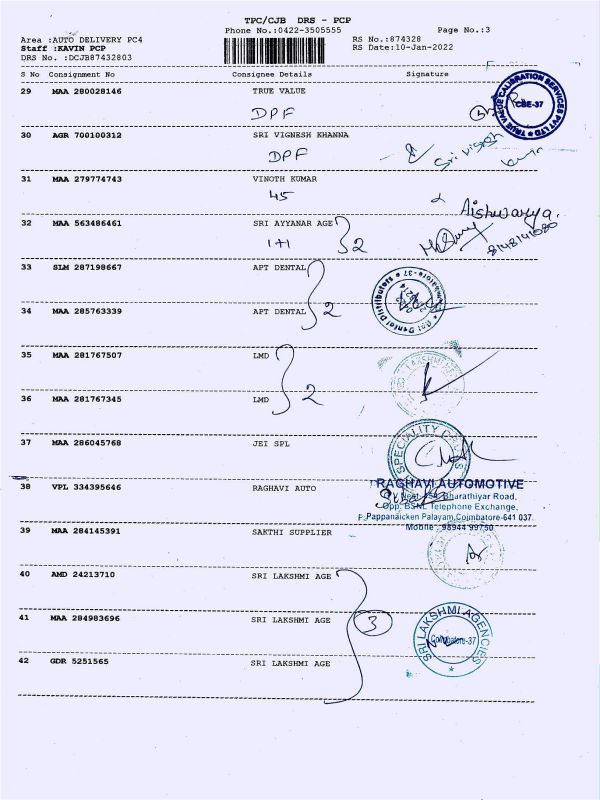 TPC/CJB DRS - PCP
Phone No.:0422-3505555
Page No.:3
Area :AUTO DELIVERY PC4
RS No.:874328
Staff :KAVIN PCP
RS Date:10-Jan-2022
DRS No. :DCJB87432803
S No Consignment No Consignee Details Signature
29 MAA 280028146 TRUE VALUE
DPF
TRUE VALUE CALIBRATION SERVICES PVT LTD
CBE-37
30 AGR 700100312 SRI VIGNESH KHANNA
DPF
Sri vignesh
31 MAA 279774743 VINOTH KUMAR
45
Aishwarya.
32 MAA 563486461 SRI AYYANAR AGE
1+1 2
33 SLM 287198667 APT DENTAL
Dental Distributors
34 MAA 285763339 APT DENTAL
2
35 MAA 281767507 LMD
LAKSHMI
36 MAA 281767345 LMD
2
37 MAA 286045768 JEI SPL
SPECIALITY
38 VPL 334395646 RAGHAVI AUTO
RAGHAVI AUTOMOTIVE
Bharathiyar Road,
Opp. BSNL Telephone Exchange,
Pappanaicken Palayam, Coimbatore-641 037.
Mobile : 98944 99750
39 MAA 284145391 SAKTHI SUPPLIER
40 AMD 24213710 SRI LAKSHMI AGE
41 MAA 284983696 SRI LAKSHMI AGE
3
SRI LAKSHMI AGENCIES
Coimbatore-37
42 GDR 5251565 SRI LAKSHMI AGE